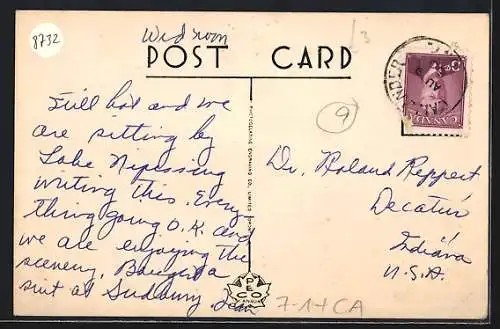 8732
Wed noon
POST CARD
3
9
CALLANDER
AU
CANADA
Still hot and we
are sitting by
Lake Nipissing
writing this. Every
thing going O.K. and
we are enjoying the
scenery. Bought a
suit at Sudbury. Jean
PHOTOGELATINE ENGRAVING CO. LIMITED
PECO
CANADA
Dr. Roland Reppert
Decatur
Indiana
U.S.A.
7-1+CA